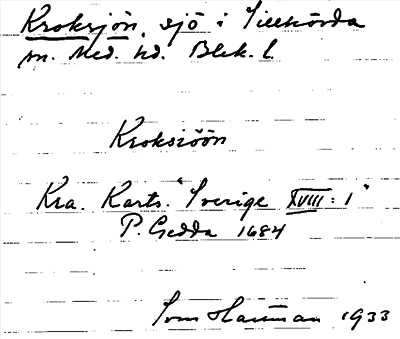 Kroksjön, sjö i Sillhövda
sn. Med. hd. Blek. l.
Kroksiöön
Kra. Kart. "Sverige XVIII: 1"
P. Gedda 1684
1933